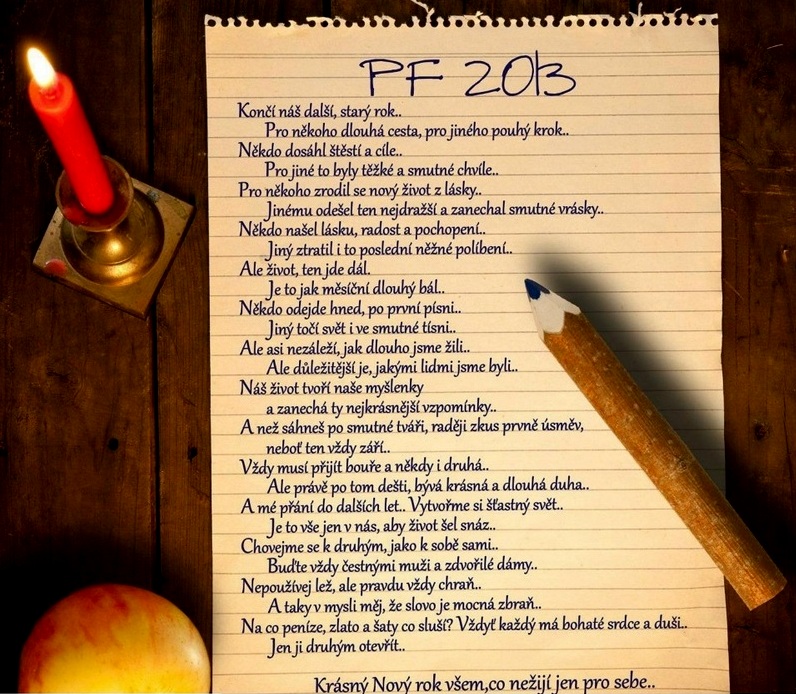 PF 2013
Končí náš další, starý rok..
Pro někoho dlouhá cesta, pro jiného pouhý krok..
Někdo dosáhl štěstí a cíle..
Pro jiné to byly těžké a smutné chvíle..
Pro někoho zrodil se nový život z lásky..
Jinému odešel ten nejdražší a zanechal smutné vrásky..
Někdo našel lásku, radost a pochopení..
Jiný ztratil i to poslední něžné políbení..
Ale život, ten jde dál.
Je to jak měsíční dlouhý bál..
Někdo odejde hned, po první písni..
Jiný točí svět i ve smutné tísni..
Ale asi nezáleží, jak dlouho jsme žili..
Ale důležitější je, jakými lidmi jsme byli..
Náš život tvoří naše myšlenky
a zanechá ty nejkrásnější vzpomínky..
A než sáhneš po smutné tváři, raději zkus prvně úsměv,
neboť ten vždy září..
Vždy musí přijít bouře a někdy i druhá..
Ale právě po tom dešti, bývá krásná a dlouhá duha..
A mé přání do dalších let.. Vytvořme si šťastný svět..
Je to vše jen v nás, aby život šel snáz..
Chovejme se k druhým, jako k sobě sami..
Buďte vždy čestnými muži a zdvořilé dámy..
Nepoužívej lež, ale pravdu vždy chraň..
A taky v mysli měj, že slovo je mocná zbraň..
Na co peníze, zlato a šaty co sluší? Vždyť každý má bohaté srdce a duši..
Jen ji druhým otevřít..
Krásný Nový rok všem,co nežijí jen pro sebe..